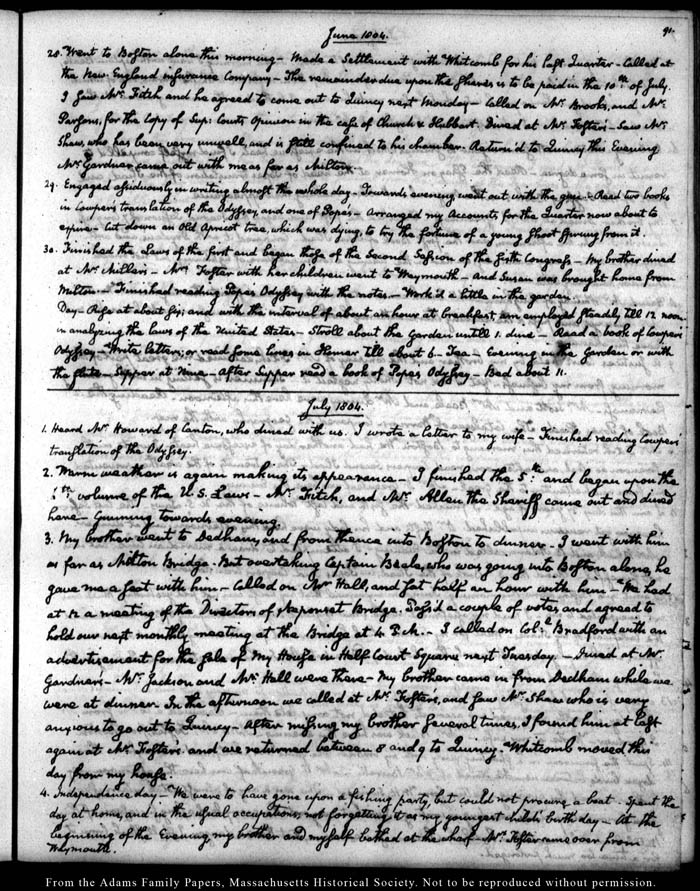 June 1804.
91.
28. Went to Boston alone this morning — Made a Settlement with Whitcomb for his last Quarter — Called at
the New England insurance Company — The remainder due upon the Shares is to be paid in the 10th of July.
I saw Mr. Fitch and he agreed to come out to Quincy next Monday — Called on Mr. Brooks, and Mr.
Parsons, for the Copy of Sup: Courts Opinion in the case of Church & Hubbart. Dined at Mr. Foster's — Saw Mr.
Shaw, who has been very unwell, and is still confined to his chamber. Return'd to Quincy this Evening
Mr. Gardner came out with me as far as Milton.
29. Engaged assiduously in writing almost the whole day — Towards evening went out with the gun — Read two books
in Cowper's translation of the Odyssey, and one of Pope's — Arranged my Accounts, for the Quarter now about to
expire — Cut down an Old Apricot tree, which was dying, to try the fortune of a young shoot springing from it.
30. Finished the Laws of the first and began those of the Second Session of the fifth Congress — My brother dined
at Mr. Miller's — Mrs. Foster with her children went to Weymouth — and Susan was brought home from
Milton — Finished reading Popes Odyssey with the notes — Work'd a little in the garden.
Day — Rise at about six; and with the interval of about an hour at breakfast, am employed steadily till 12 noon
in analyzing the laws of the United States — Stroll about the Garden untill 1. dine — Read a book of Cowpers
Odyssey — Write letters, or read some lines in Homer till about 6 — Tea — Evening in the Garden or with
the flute — Supper at Nine — After Supper read a book of Popes Odyssey — Bed about 11.
July 1804.
1. Heard Mr. Howard of Canton, who dined with us. I wrote a letter to my wife — Finished reading Cowpers
translation of the Odyssey.
2. Warm weather is again making its appearance — I finished the 5th and began upon the
volume of the U.S. Laws — Mr. Fitch, and Mr. Allen the Sheriff came out and dined
here — Gunning towards evening.
3. My brother went to Dedham, and from thence into Boston to dinner — I went with him
as far as Milton Bridge. But overtaking Captain Beale, who was going into Boston alone, he
gave me a seat with him — Called on Mr. Hall, and sat half an hour with him — We had
at 12 a meeting of the Directors of Neponset Bridge. Pass'd a couple of votes, and agreed to
hold our next monthly meeting at the Bridge at 4 P.M. — I called on Col:l Bradford with an
advertisement for the Sale of my House in Half Court Square next Tuesday. — Dined at Mr.
Gardner's — Mr. Jackson and Mr. Hall were there — My brother came in from Dedham while we
were at dinner. In the afternoon we called at Mr. Foster's, and saw Mr. Shaw who is very
anxious to go out to Quincy — After missing my brother several times, I found him at last
again at Mr. Fosters. and we returned between 8 and 9 to Quincy. Whitcomb moved this
day from my house.
4. Independence day — We were to have gone upon a fishing party, but could not procure a boat — Spent the
day at home, and in the usual occupations, not forgetting it as my youngest child's birth day — At the
beginning of the Evening, my brother and myself bathed at the wharf — Mr. Foster came over from
Weymouth.
From the Adams Family Papers, Massachusetts Historical Society. Not to be reproduced without permission.